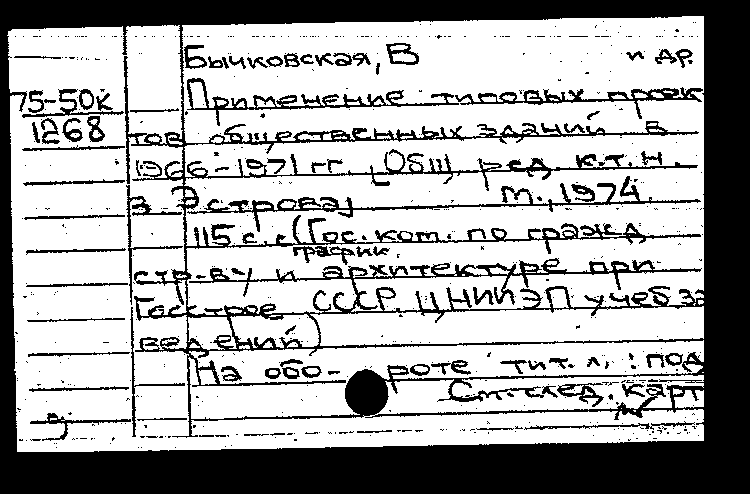 Бычковская, В и др.
75-50к Применение типовых проек
1268 тов общественных зданий в
1966-1971 гг. [Общ] ред. к.т.н.
З. Эстрова] М., 1974.
115 с. с (Гос. ком. по гражд
график.
стр-ву и архитектуре при
Госстрое СССР. ЦНИИЭП учеб за
ведений)
На обо- роте тит. л. : под
См. след. карт